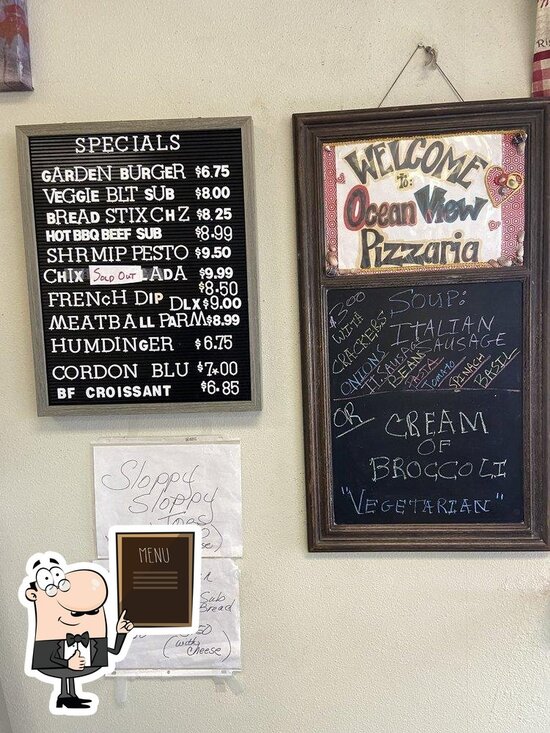 SPECIALS
GARDEN BURGER $6.75
VEGGIE BLT SUB $8.00
BREAD STIX CHZ $8.25
HOT BBQ BEEF SUB $8.99
SHRMIP PESTO $9.50
CHIX SOLD OUT LADA $9.99
FRENCH DIP $8.50
DLX $9.00
MEATBALL PARM $8.99
HUMDINGER $6.75
CORDON BLU $7.00
BF CROISSANT $6.85
WELCOME
TO:
Ocean View
Pizzaria
$3.00
WITH
CRACKERS
SOUP:
ITALIAN
SAUSAGE
ONIONS
IT. SAUSAGE
BEANS
PASTA
TOMATO
SPINACH
BASIL
OR
CREAM
OF
BROCCOLI
"VEGETARIAN"
Sloppy
Sloppy
Joes
cheese)
Sub
Bread
(with
cheese)
MENU